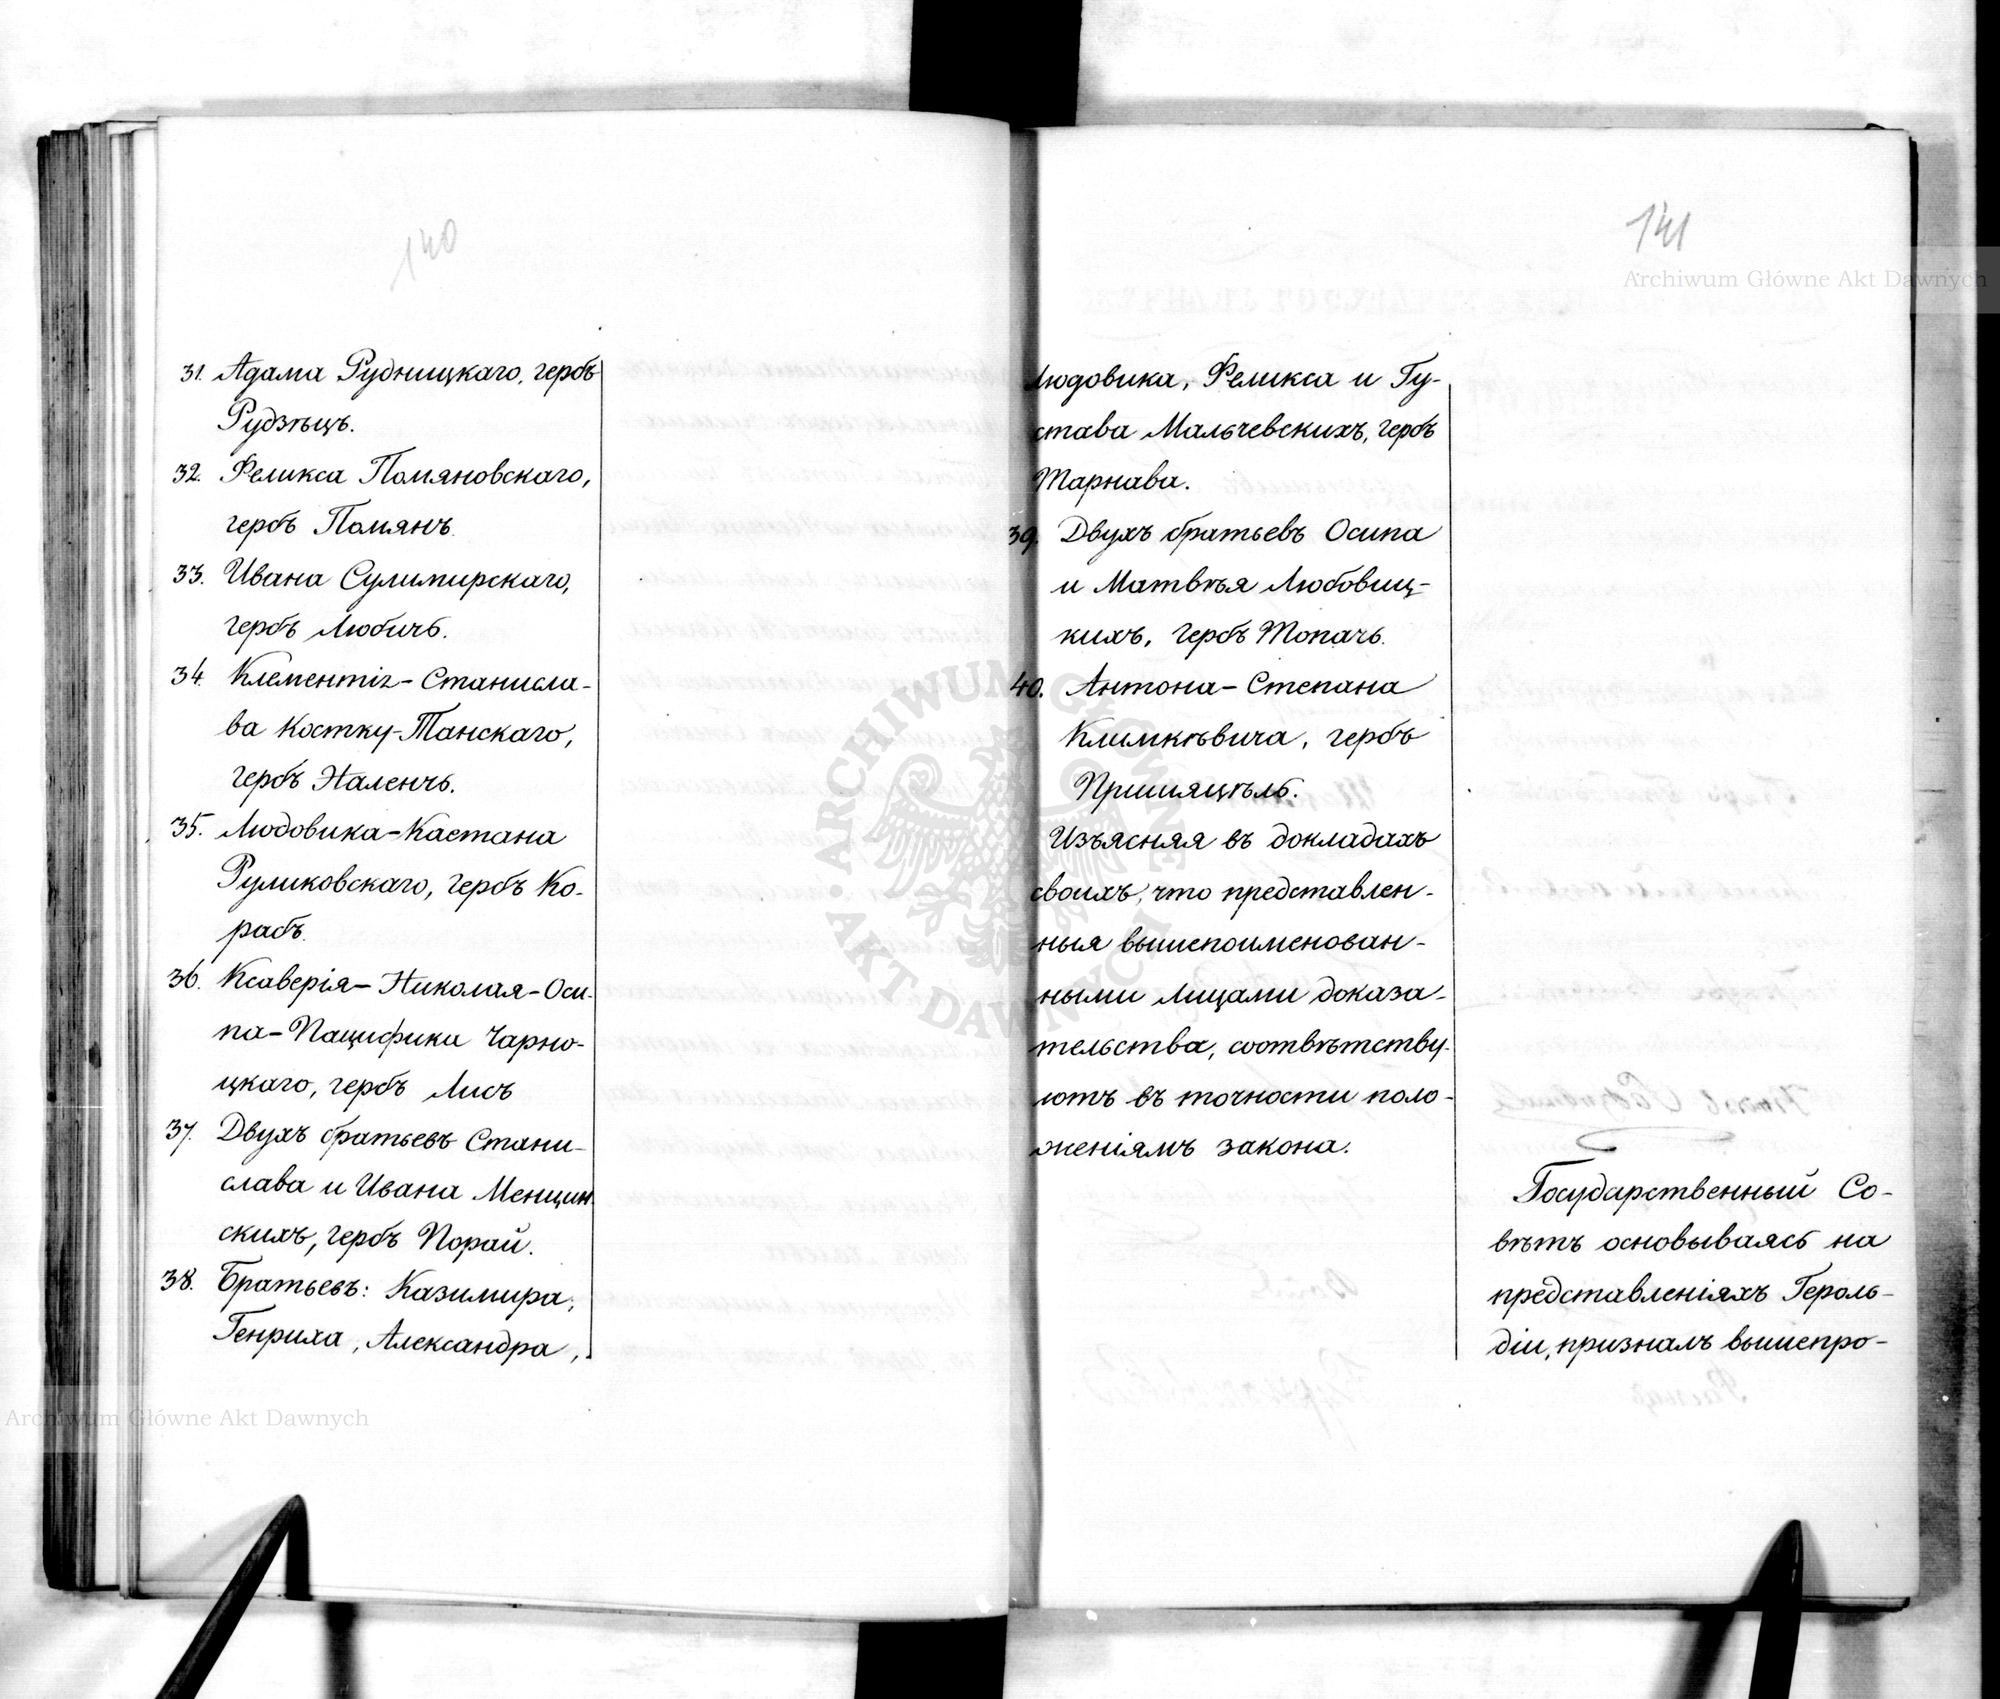 140
31. Адама Рудницкаго, гербъ
Рудзѣцъ.
32. Феликса Помяновскаго,
гербъ Помянъ.
33. Ивана Сулимирскаго,
гербъ Любичъ.
34. Клементія-Станисла-
ва Костку-Танскаго,
гербъ Наленчъ.
35. Людовика-Каетана
Руликовскаго, гербъ Ко-
рабъ.
36. Ксаверія-Николая-Оси-
па-Пацифики Чарно-
цкаго, гербъ Лисъ
37. Двухъ братьевъ Стани-
слава и Ивана Менцин-
скихъ, гербъ Порай.
38. Братьевъ: Казимира,
Генриха, Александра,
141
Людовика, Феликса и Гу-
става Мальчевскихъ, гербъ
Тарнава.
39. Двухъ братьевъ Осипа
и Матвѣя Любовиц-
кихъ, гербъ Топачъ.
40. Антона-Степана
Климкѣвича, гербъ
Пришяцѣль.
Изъясняя въ докладахъ
своихъ, что представлен-
ныя вышепоименован-
ными лицами доказа-
тельства, соотвѣтству-
ютъ въ точности поло-
женіямъ закона.
Государственный Со-
вѣтъ основываясь на
представленіяхъ Героль-
діи, призналъ вышепро-
Archiwum Główne Akt Dawnych
Archiwum Główne Akt Dawnych
ARCHIWUM GŁÓWNE AKT DAWNYCH